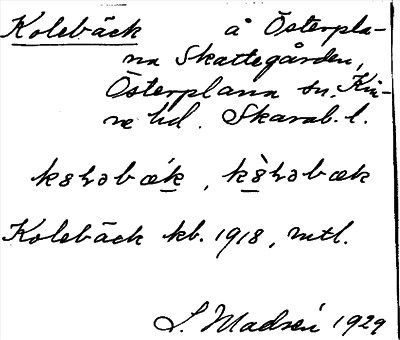 Kolebäck å Österpla-
na Skattegården,
Österplana sn. Kin-
ne hd. Skarab. l.
Kolebäck kb. 1918, mtl.
L. Madsén 1929